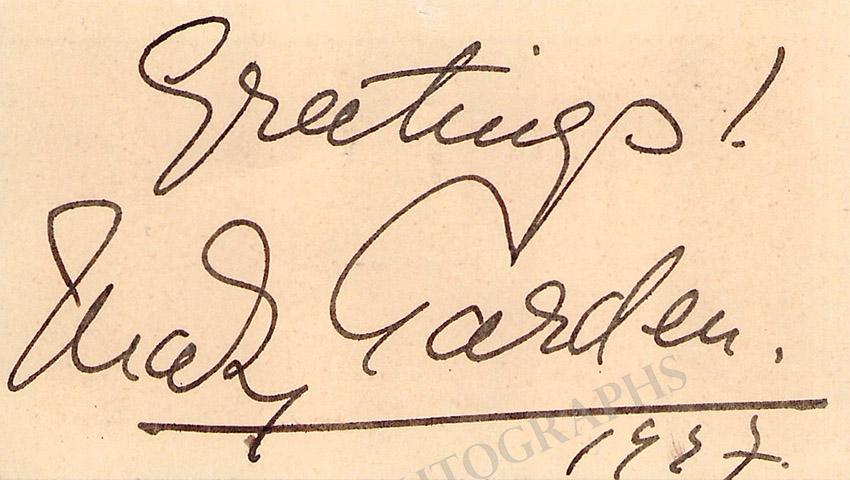 Greetings!
Mary Garden.
AUTOGRAPHS